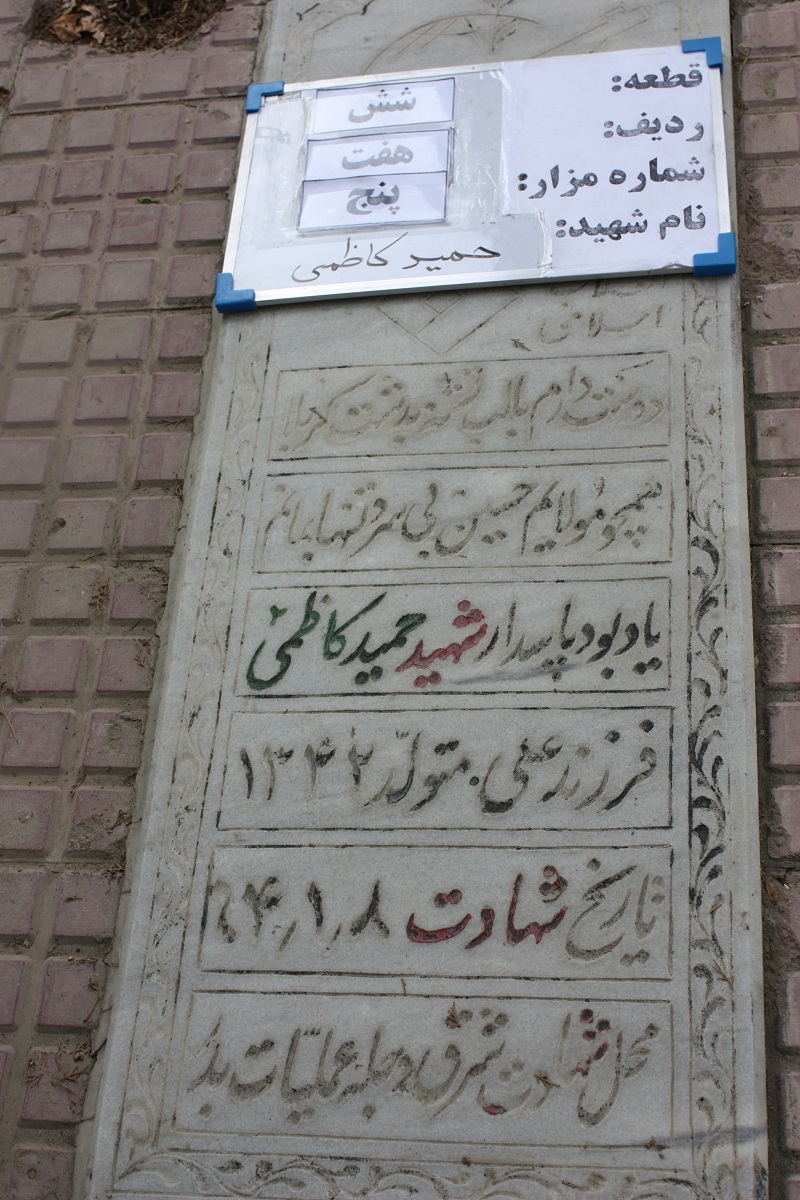 قطعه: شش
ردیف: هفت
شماره مزار: پنج
نام شهید: حمید کاظمی
اسلامی
دوست دارم با لب تشنه بدشت کربلا
همچو مولایم حسین بی سر و تنها بمانم
یادبود پاسدار شهید حمید کاظمی
فرزند علی. متولد ۱۳۴۲
تاریخ شهادت ۶۴/۱/۸
محل شهادت شرق دجله عملیات بدر